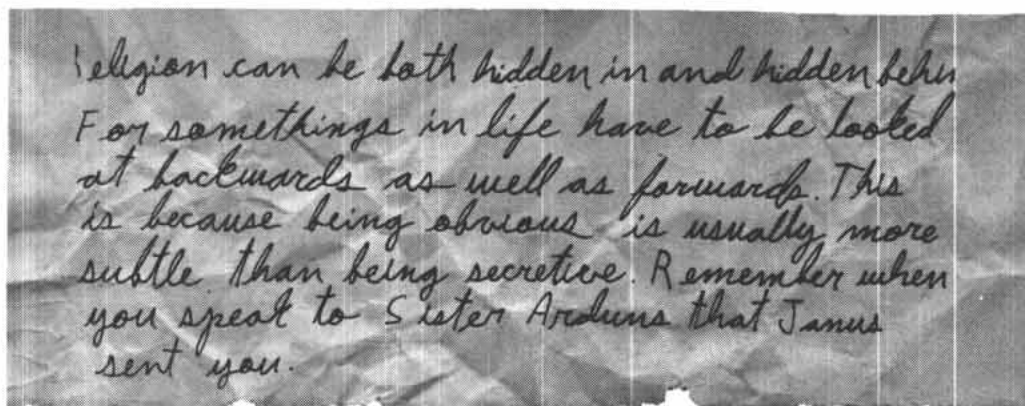 Religion can be both hidden in and hidden behin
For somethings in life have to be looked
at backwards as well as forwards. This
is because being obvious is usually more
subtle than being secretive. Remember when
you speak to Sister Arduns that Janus
sent you.